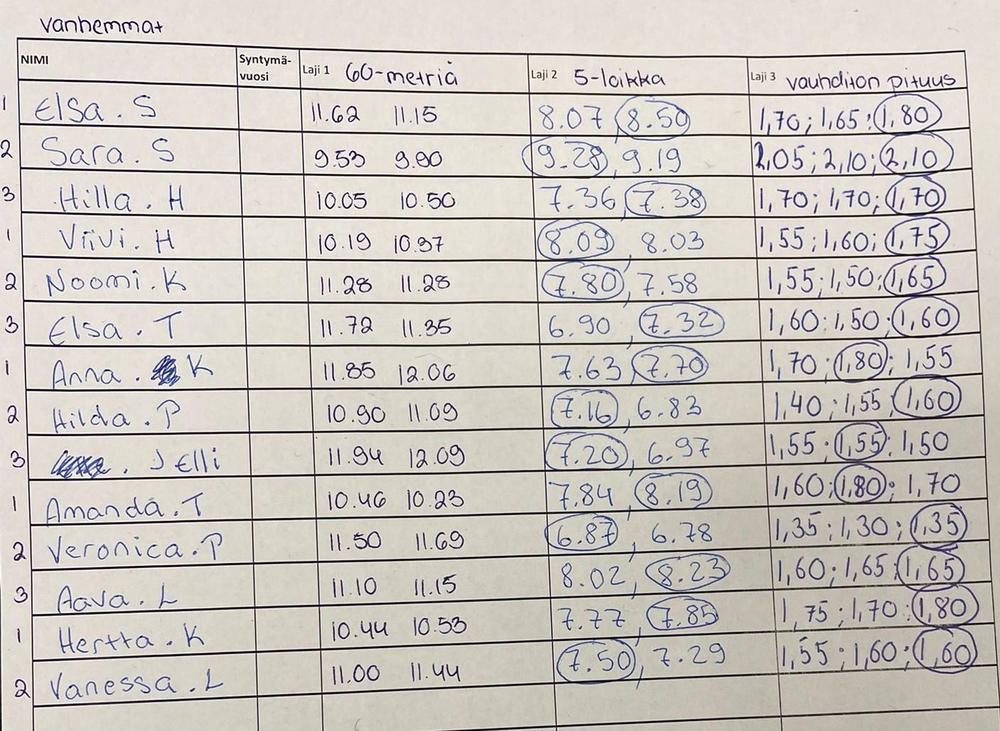 vanhemmat
NIMI Syntymä-vuosi Laji 1 60-metriä Laji 2 5-loikka Laji 3 vauhditon pituus
1 Elsa. S 11.62 11.15 8.07, 8.50 1,70; 1,65; 1,80
2 Sara. S 9.53 9.90 9.28, 9.19 2,05; 2,10; 2,10
3 Hilla. H 10.05 10.50 7.36, 7.38 1,70; 1,70; 1,70
1 Viivi. H 10.19 10.37 8.09, 8.03 1,55; 1,60; 1,75
2 Noomi. K 11.28 11.28 7.80, 7.58 1,55; 1,50; 1,65
3 Elsa. T 11.72 11.35 6.90, 7.32 1,60; 1,50; 1,60
1 Anna. K 11.85 12.06 7.63, 7.70 1,70; 1,80; 1,55
2 Hilda. P 10.90 11.09 7.16, 6.83 1,40; 1,55; 1,60
3 . J Elli 11.94 12.09 7.20, 6.97 1,55; 1,55; 1,50
1 Amanda. T 10.46 10.23 7.84, 8.19 1,60; 1,80; 1,70
2 Veronica. P 11.50 11.69 6.87, 6.78 1,35; 1,30; 1,35
3 Aava. L 11.10 11.15 8.02, 8.23 1,60; 1,65; 1,65
1 Hertta. K 10.44 10.53 7.77, 7.85 1,75; 1,70; 1,80
2 Vanessa. L 11.00 11.44 7.50, 7.29 1,55; 1,60; 1,60